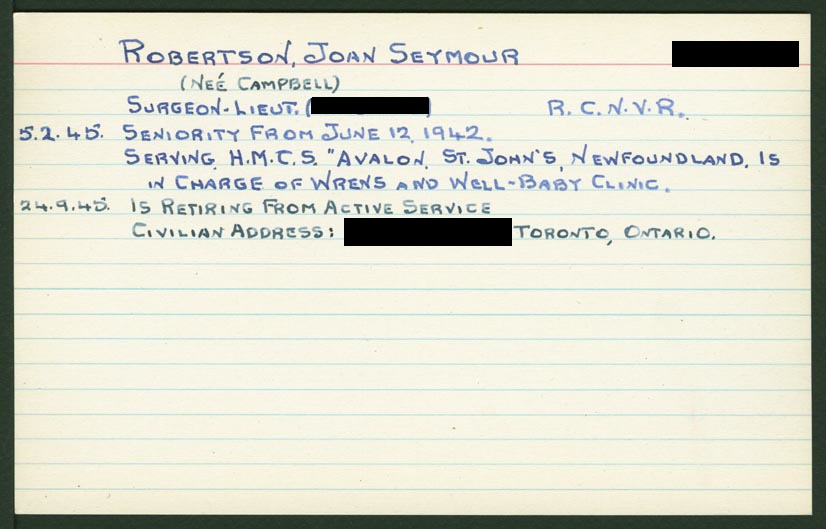 ROBERTSON, JOAN SEYMOUR
(NEÉ CAMPBELL)
SURGEON-LIEUT. ( ) R.C.N.V.R.
5.2.45. SENIORITY FROM JUNE 12, 1942.
SERVING, H.M.C.S. "AVALON, ST. JOHN'S, NEWFOUNDLAND, IS
IN CHARGE OF WRENS AND WELL-BABY CLINIC.
24.9.45. IS RETIRING FROM ACTIVE SERVICE
CIVILIAN ADDRESS: TORONTO, ONTARIO.